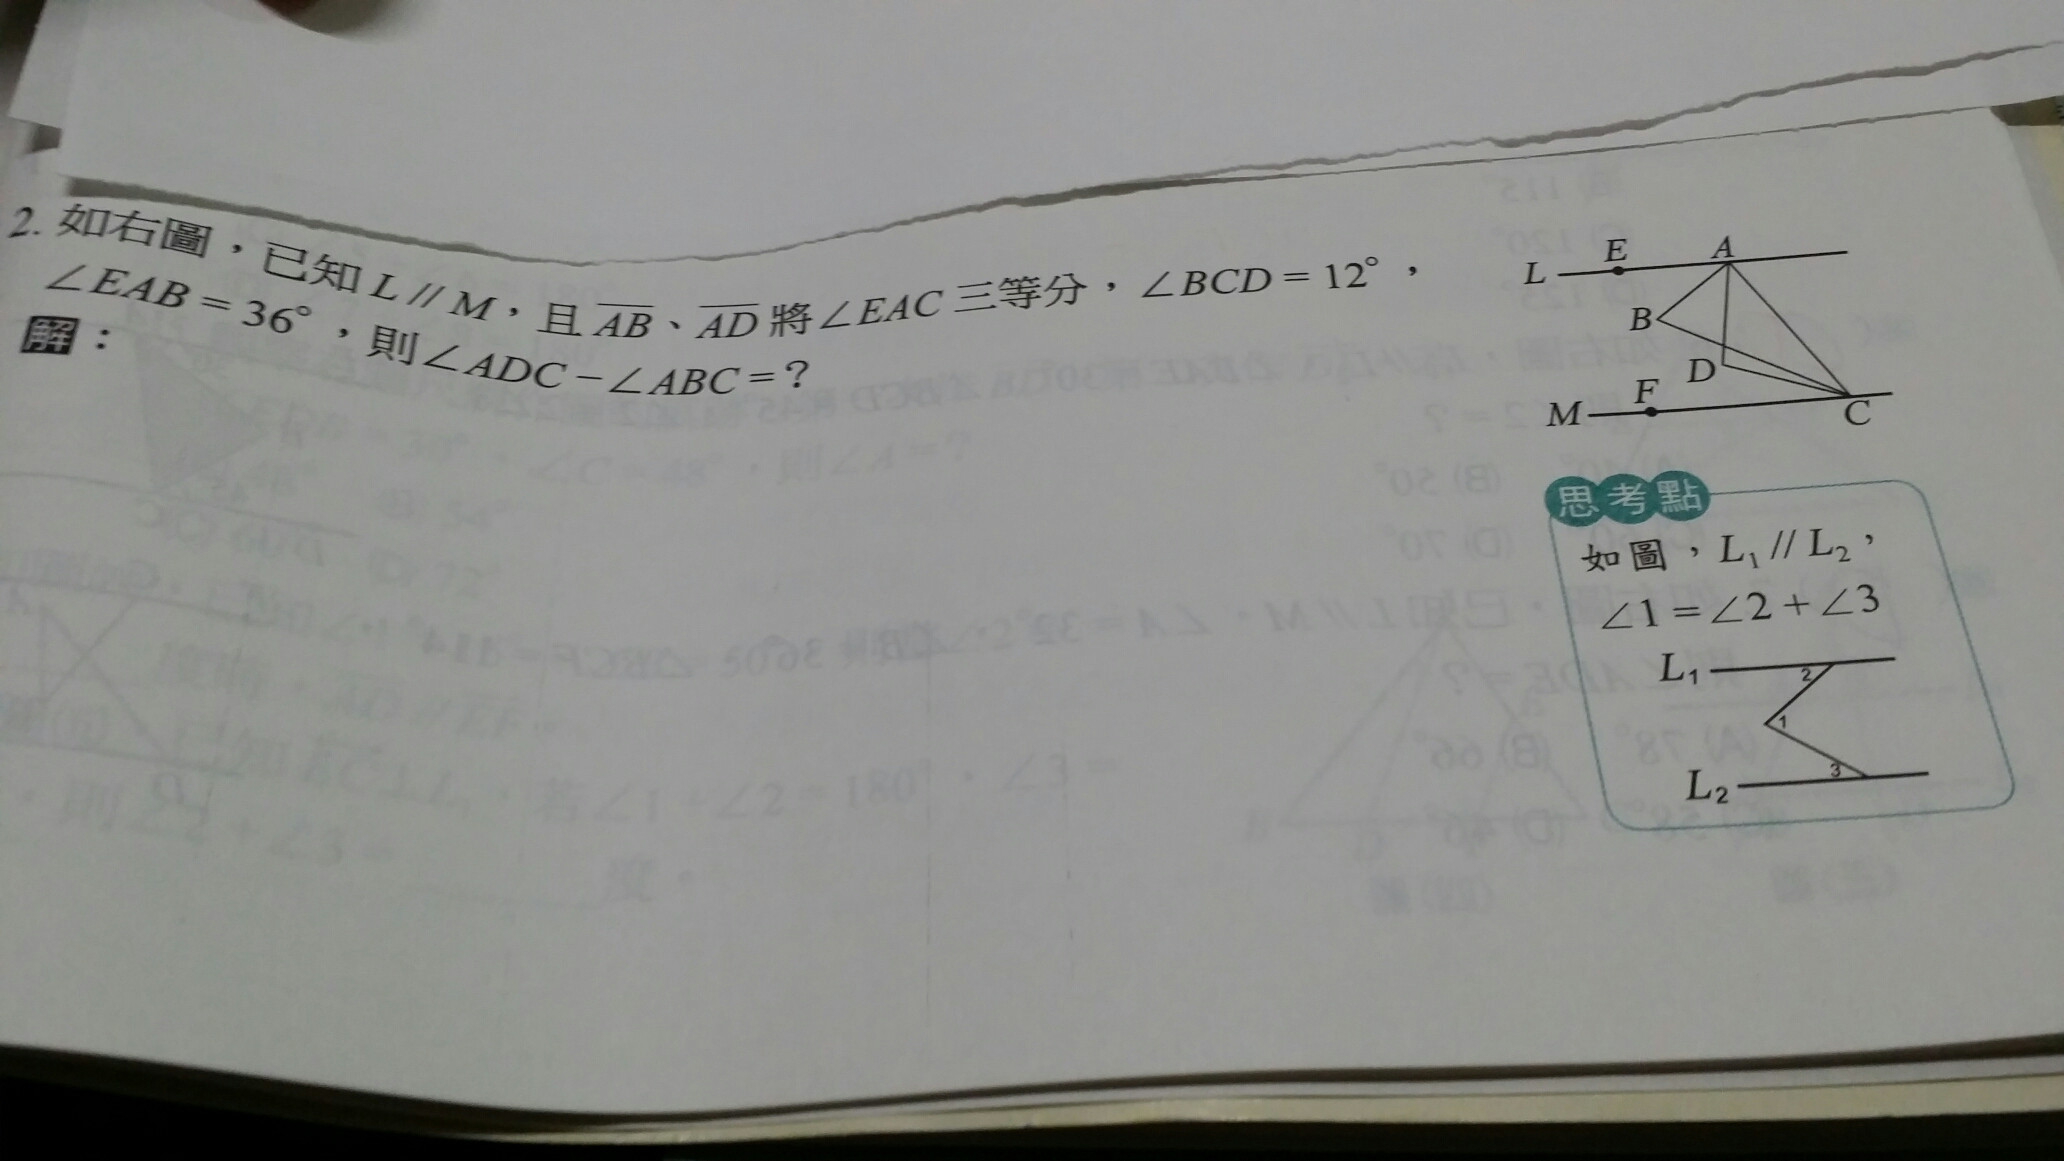 2. 如右圖，已知 L // M，且 AB、AD 將∠EAC 三等分，∠BCD = 12°，
∠EAB = 36°，則∠ADC − ∠ABC = ？
解：
L E A
B
D
M F C
思考點
如圖，L₁ // L₂，
∠1 = ∠2 + ∠3
L₁ 2
1
L₂ 3